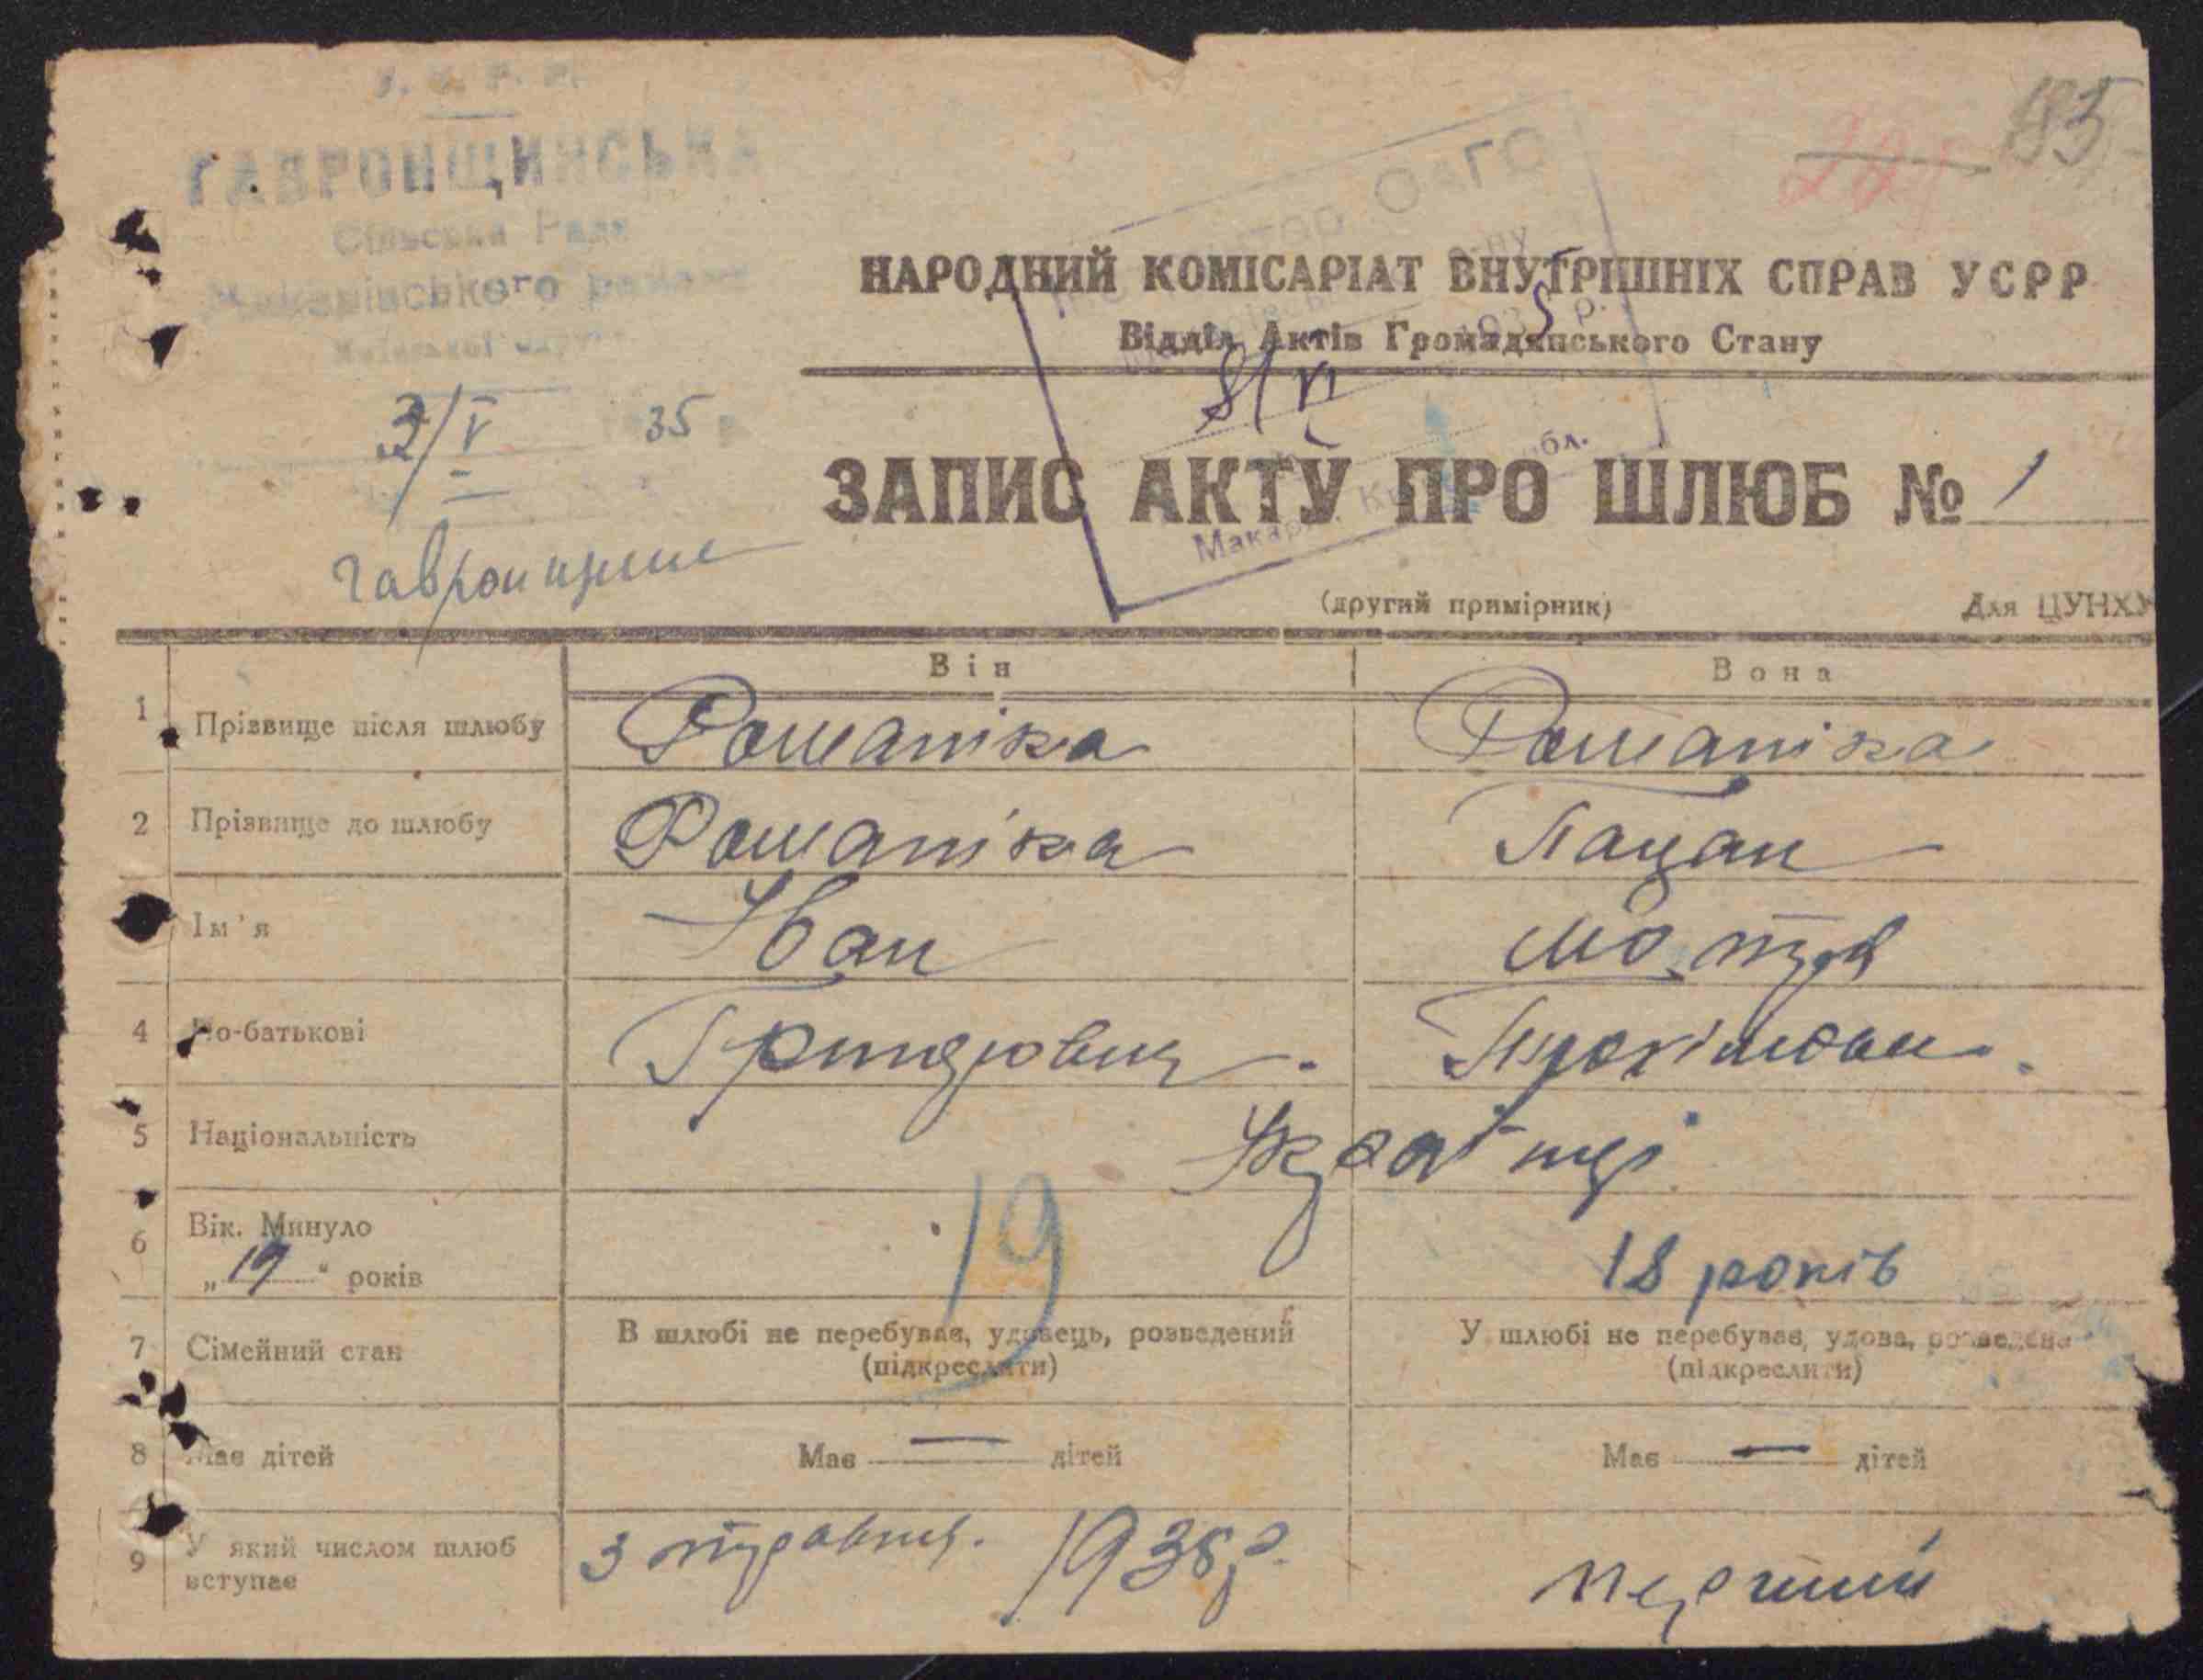 У. С. Р. Р.
ГАВРОНЩИНСЬКА
Сільська Рада
Макарівського району
3/V 35
Гавронщине
221 135
НАРОДНИЙ КОМІСАРІАТ ВНУТРІШНІХ СПРАВ УСРР
Відділ Актів Громадянського Стану
ЗАПИС АКТУ ПРО ШЛЮБ № 1
(другий примірник) Для ЦУНХУ
Він Вона
1 Прізвище після шлюбу Романіка Романіка
2 Прізвище до шлюбу Романіка Пацан
Ім'я Іван Мотря
4 По-батькові
5 Національність Українці
6 Вік. Минуло
„19“ років 19 18 років
7 Сімейний стан В шлюбі не перебував, удовець, розведений У шлюбі не перебував, удова, розведена
(підкреслити) (підкреслити)
8 Має дітей Має — дітей Має — дітей
9 У який числом шлюб
вступає 3 травня. 1935р. перший